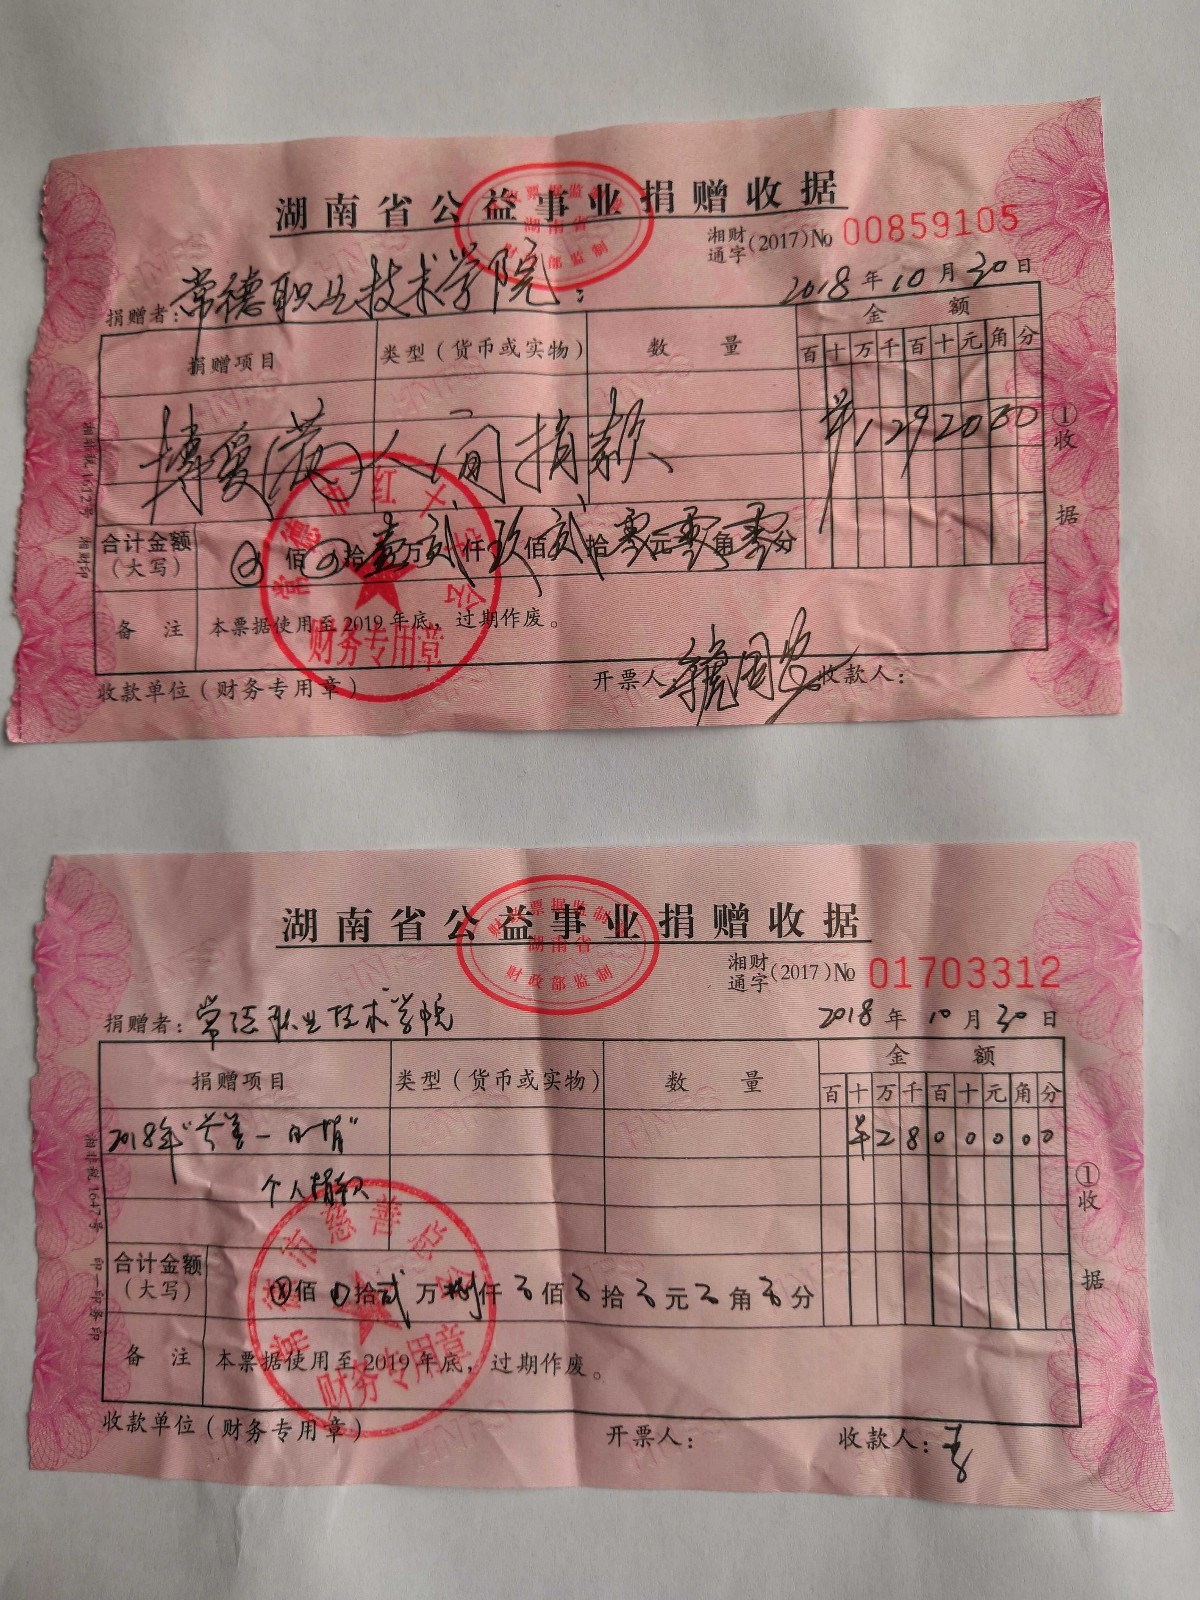 湖南省公益事业捐赠收据
湘财通字(2017)№ 00859105
捐赠者：常德职业技术学院： 2018年10月30日
捐赠项目 类型（货币或实物） 数 量 金 额
百 十 万 千 百 十 元 角 分
博爱(满)人间捐款 ¥1292000
合计金额（大写） ⊗佰⊗拾壹万贰仟玖佰贰拾零元零角零分
备 注 本票据使用至2019年底，过期作废。
收款单位（财务专用章） 开票人 收款人：
①收据
湖南省
常德市红十字会
财务专用章
湖南省公益事业捐赠收据
湘财通字(2017)№ 01703312
捐赠者：常德职业技术学院 2018年10月30日
捐赠项目 类型（货币或实物） 数 量 金 额
百 十 万 千 百 十 元 角 分
2018年“慈善一日捐” ¥2800000
个人捐款
合计金额（大写） ⊗佰 拾贰万捌仟0佰0拾0元0角0分
备 注 本票据使用至2019年底，过期作废。
收款单位（财务专用章） 开票人： 收款人：
①收据
财政票据监制
湖南省
财政部监制
常德市慈善总会
财务专用章